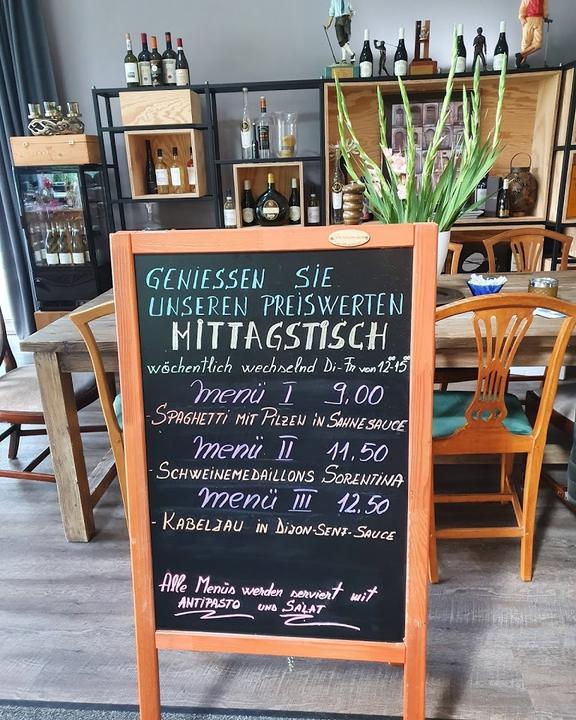 GENIESSEN SIE
UNSEREN PREISWERTEN
MITTAGSTISCH
wöchentlich wechselnd Di-Fr von 12⁰⁰-15⁰⁰
menü I 9,00
- SPAGHETTI MIT PILZEN IN SAHNESAUCE
menü II 11,50
- SCHWEINEMEDAILLONS SORENTINA
menü III 12,50
- KABELJAU IN DIJON-SENF-SAUCE
Alle Menüs werden serviert mit
ANTIPASTO UND SALAT